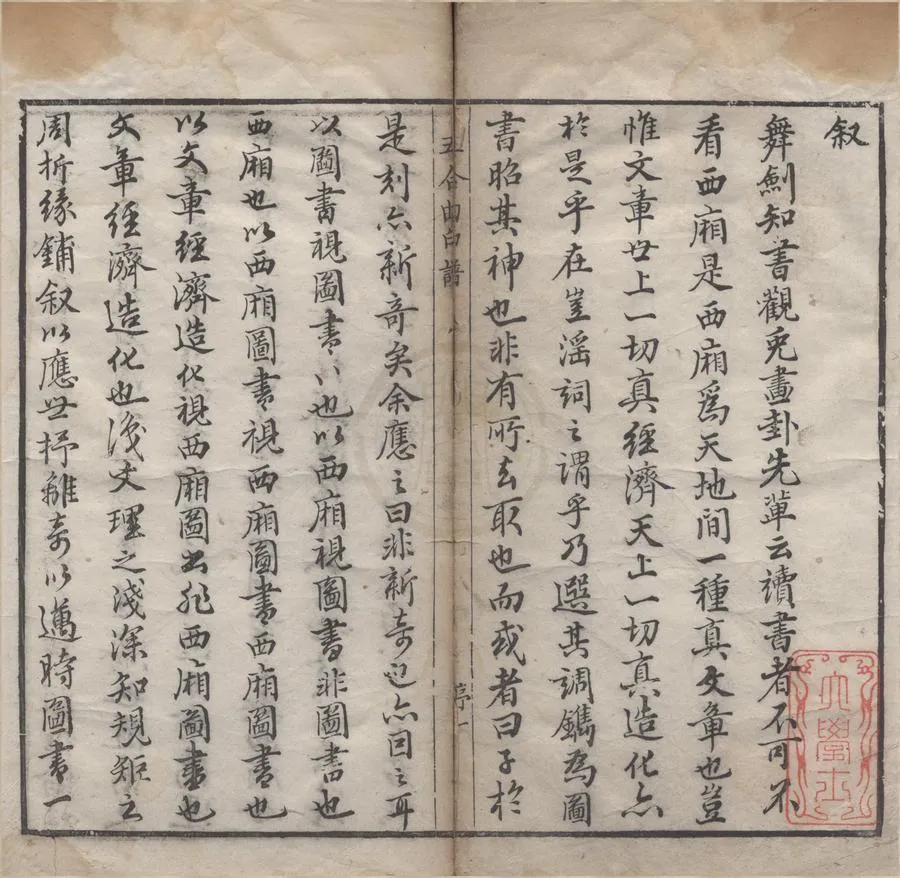 叙
舞劍知書觀兎畫卦先軰云讀書者不可不
看西廂是西廂爲天地間一種真文章也豈
惟文章世上一切真經濟天上一切真造化亦
於是乎在豈滛詞之謂乎乃選其調鐫為圖
書昭其神也非有所去取也而或者曰子於
五合曲白譜
序一
是刻亦新奇矣余應之曰非新奇也亦因之耳
以圖書視圖書〻也以西廂視圖書非圖書也
西廂也以西廂圖書視西廂圖書西廂圖書也
以文章經濟造化視西廂圖書非西廂圖書也
文章經濟造化也後丈理之淺深知規矩之
周折緣鋪叙以應世抒離奇以邁時圖書一
大學士